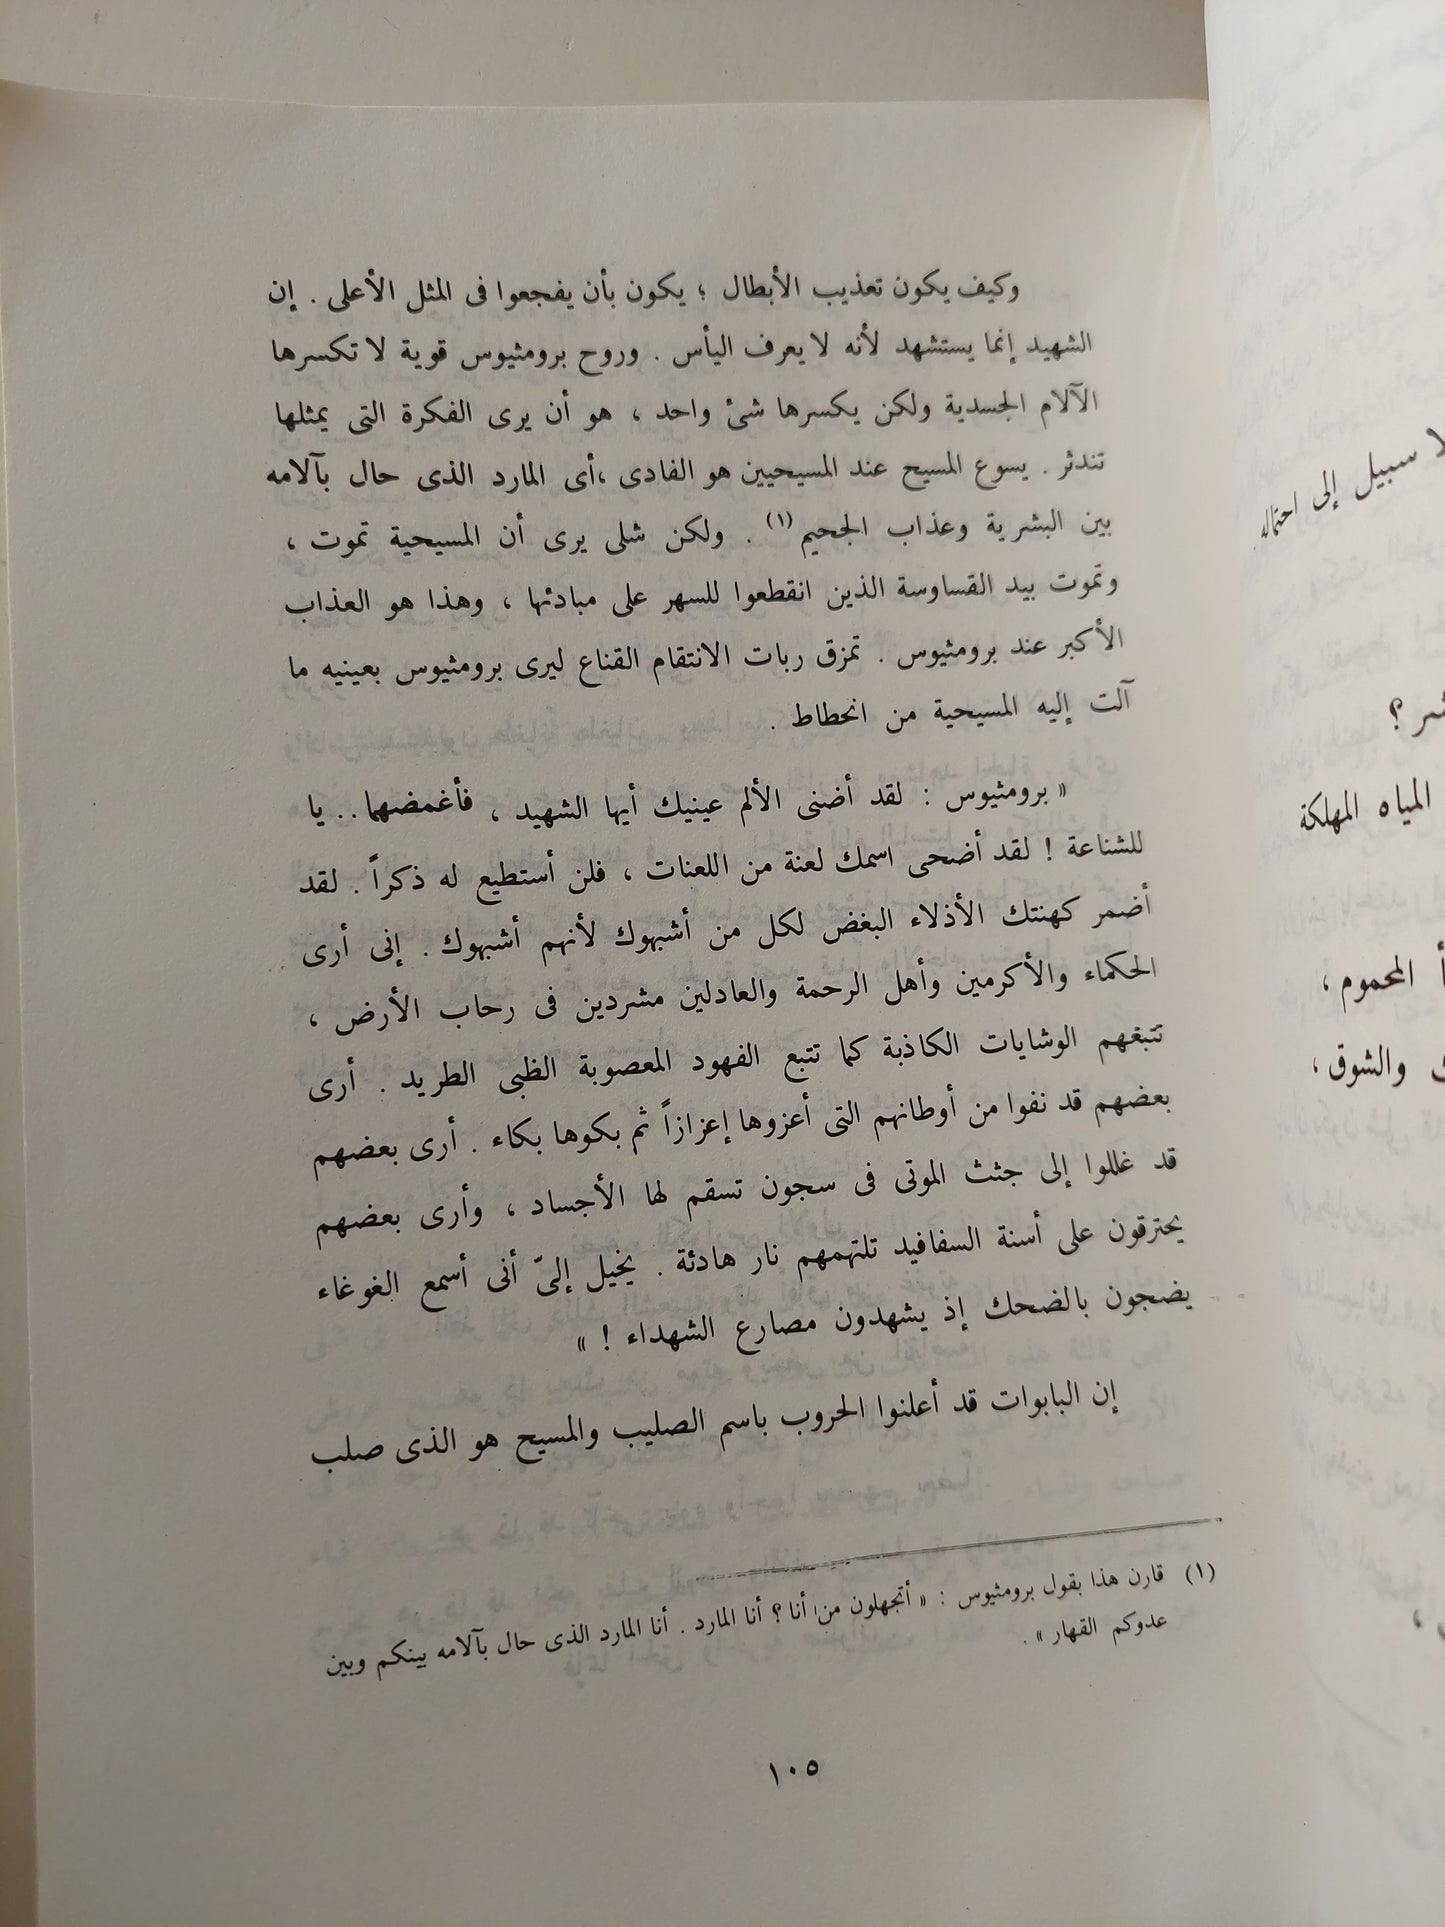 وكيف يكون تعذيب الأبطال ؛ يكون بأن يفجعوا فى المثل الأعلى . إن
الشهيد إنما يستشهد لأنه لا يعرف اليأس . وروح برومثيوس قوية لا تكسرها
الآلام الجسدية ولكن يكسرها شئ واحد ، هو أن يرى الفكرة التى يمثلها
تندثر . يسوع المسيح عند المسيحيين هو الفادى ،أى المارد الذى حال بآلامه
بين البشرية وعذاب الجحيم (١) . ولكن شلى يرى أن المسيحية تموت ،
وتموت بيد القساوسة الذين انقطعوا للسهر على مبادئها ، وهذا هو العذاب
الأكبر عند برومثيوس . تمزق ربات الانتقام القناع ليرى برومثيوس بعينيه ما
آلت إليه المسيحية من انحطاط .
« برومثيوس : لقد أضنى الألم عينيك أيها الشهيد ، فأغمضهما . . يا
للشناعة ! لقد أضحى اسمك لعنة من اللعنات ، فلن أستطيع له ذكراً . لقد
أضمر كهنتك الأذلاء البغض لكل من أشبهوك لأنهم أشبهوك . إنى أرى
الحكماء والأكرمين وأهل الرحمة والعادلين مشردين فى رحاب الأرض ،
تتبغهم الوشايات الكاذبة كما تتبع الفهود المعصوبة الظبى الطريد . أرى
بعضهم قد نفوا من أوطانهم التى أعزوها إعزازاً ثم بكوها بكاء . أرى بعضهم
قد غللوا إلى جثث الموتى فى سجون تسقم لها الأجساد ، وأرى بعضهم
يحترقون على أسنة السفافيد تلتهمهم نار هادئة . يخيل إلىّ أنى أسمع الغوغاء
يضجون بالضحك إذ يشهدون مصارع الشهداء ! »
إن البابوات قد أعلنوا الحروب باسم الصليب والمسيح هو الذى صلب
(١) قارن هذا بقول برومثيوس : « أتجهلون من أنا ؟ أنا المارد . أنا المارد الذى حال بآلامه بينكم وبين
عدوكم القهار » .
١٠٥
لا سبيل إلى احتماله
المياه المهلكة
المحموم ،
والشوق ،